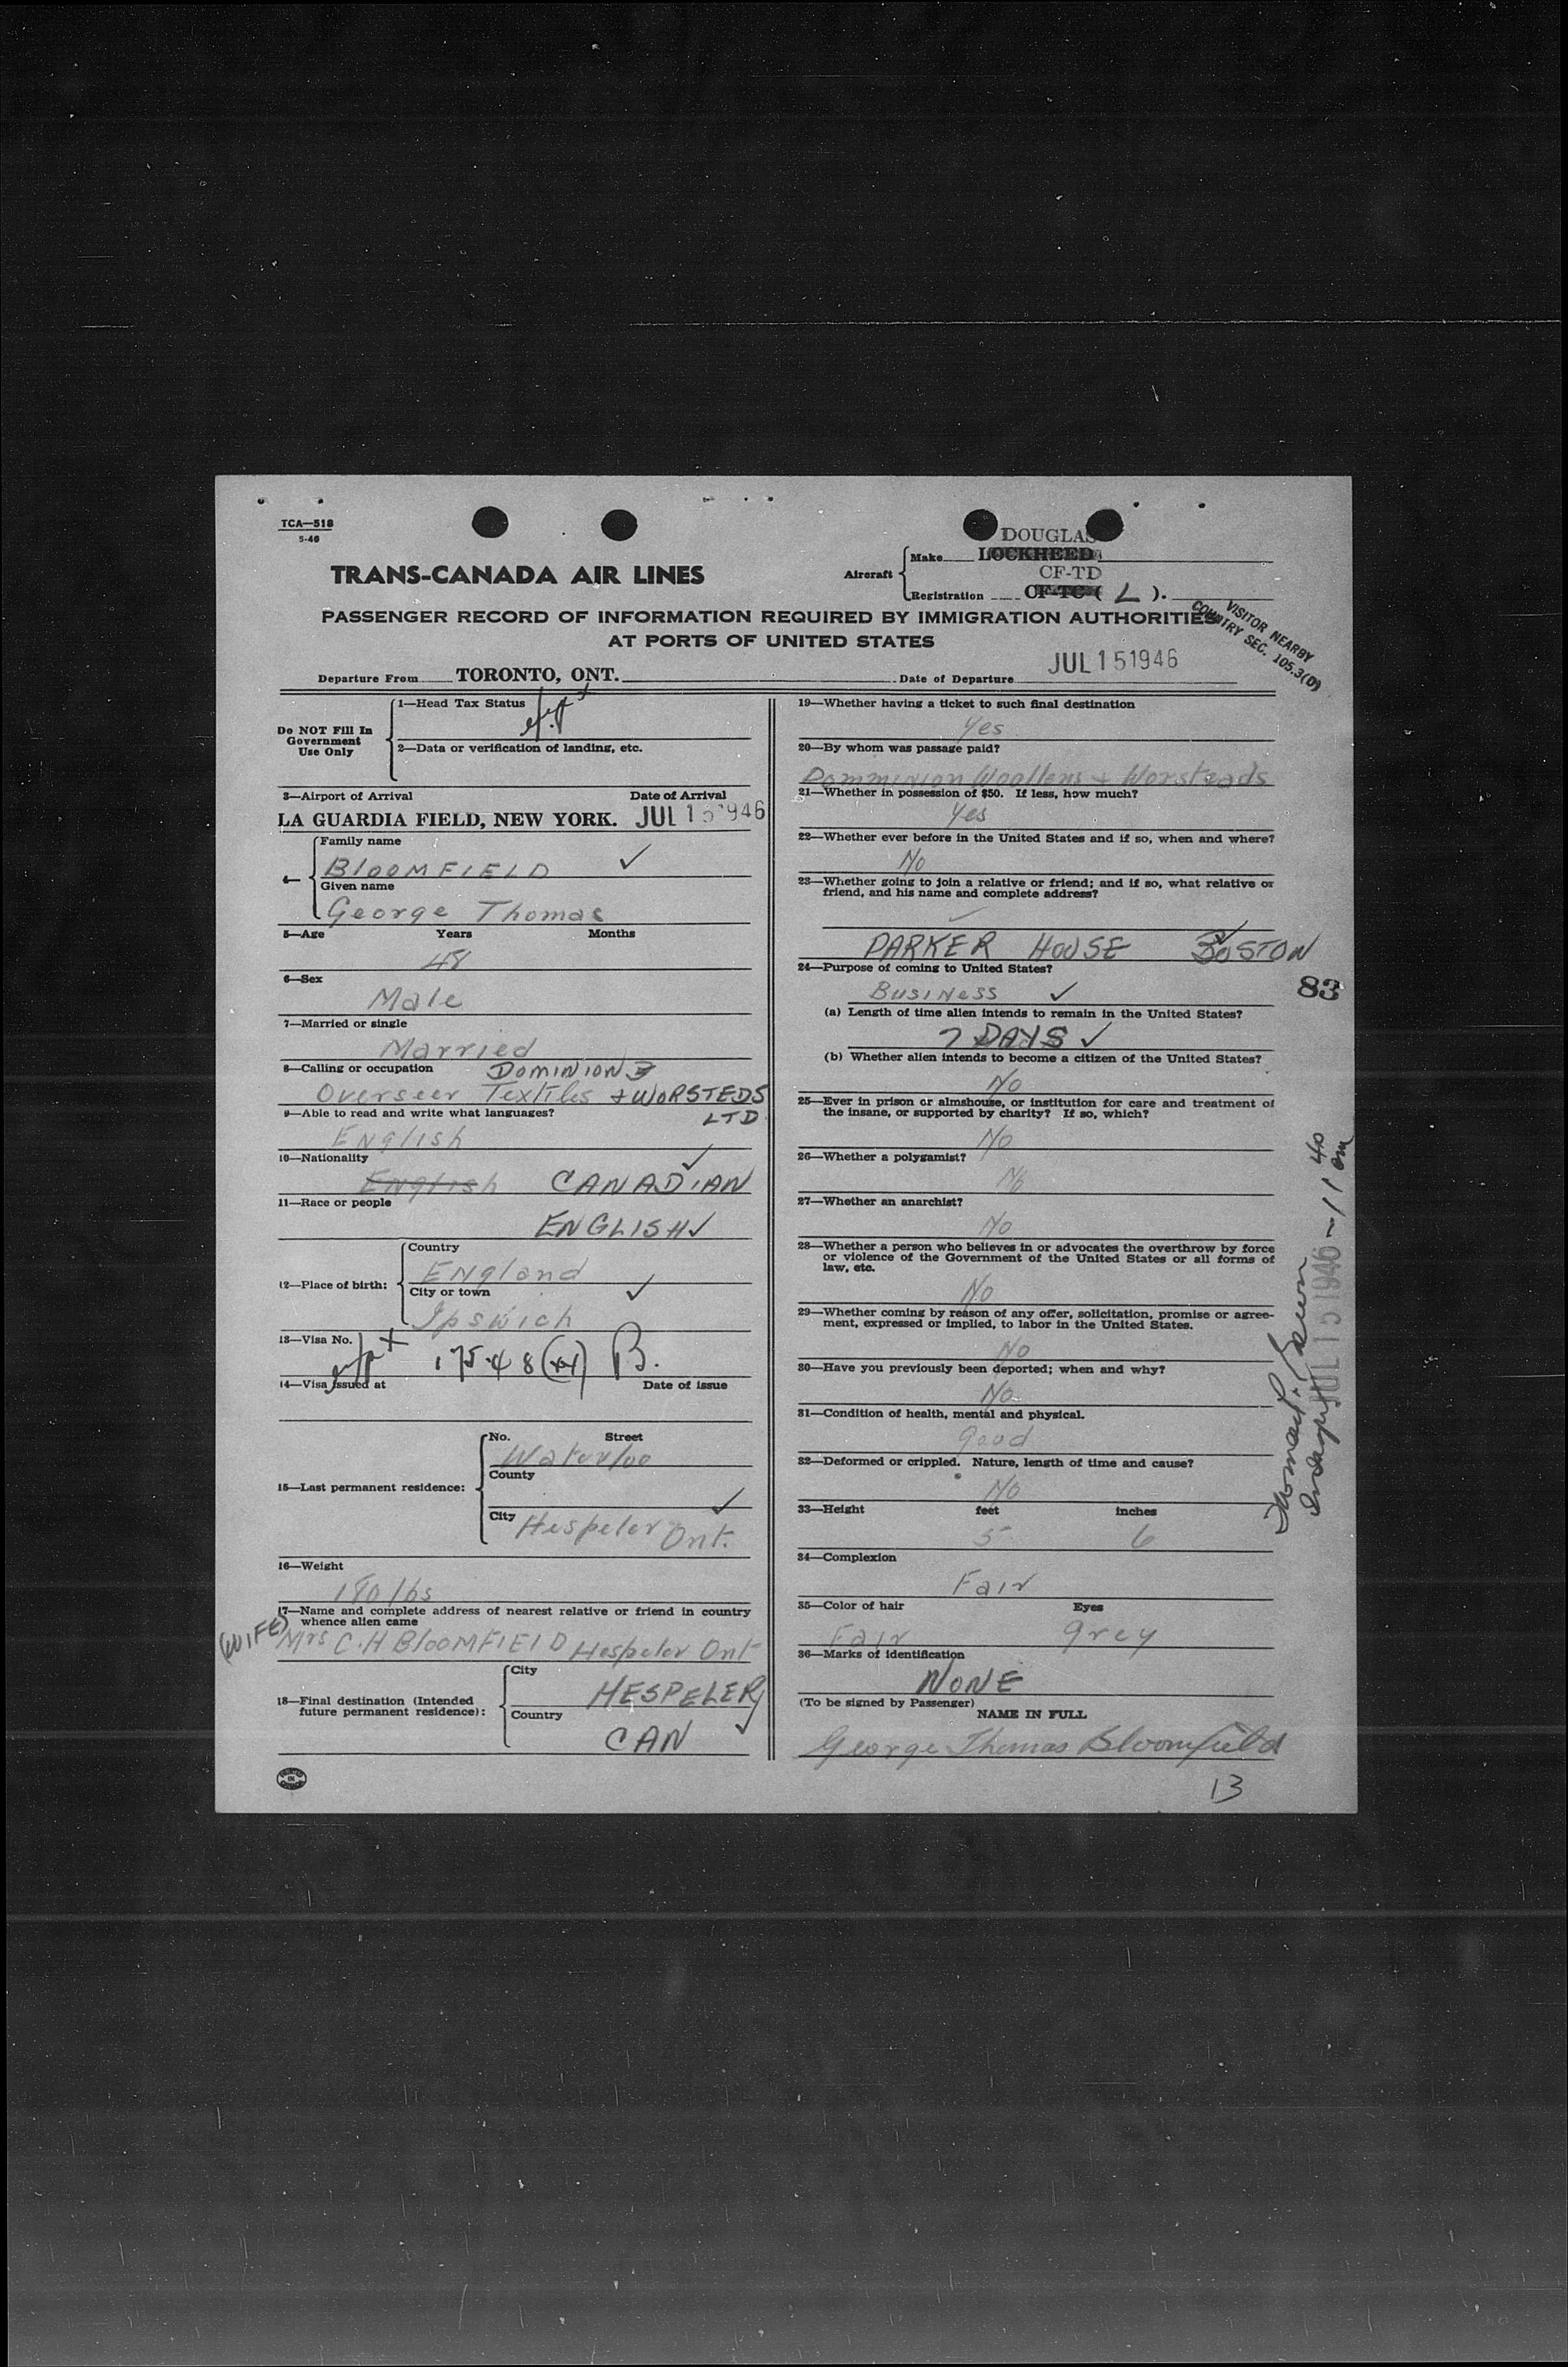 TCA—518
5-46
TRANS-CANADA AIR LINES
Aircraft
Make
DOUGLAS
LOCKHEED
CF-TD
Registration CF-TC ( L ).
PASSENGER RECORD OF INFORMATION REQUIRED BY IMMIGRATION AUTHORITIES
AT PORTS OF UNITED STATES
VISITOR NEARBY
COUNTRY SEC. 105.3(D)
Departure From TORONTO, ONT. Date of Departure JUL 15 1946
Do NOT Fill In
Government
Use Only
1—Head Tax Status
2—Data or verification of landing, etc.
3—Airport of Arrival Date of Arrival
LA GUARDIA FIELD, NEW YORK. JUL 15 1946
4—
Family name
BLOOMFIELD
Given name
George Thomas
5—Age Years Months
48
6—Sex
Male
7—Married or single
Married
8—Calling or occupation DOMINION
Overseer Textiles + WORSTEDS
LTD
9—Able to read and write what languages?
English
10—Nationality
English CANADIAN
11—Race or people
ENGLISH
12—Place of birth:
Country
England
City or town
Ipswich
13—Visa No.
B.
14—Visa issued at Date of issue
15—Last permanent residence:
No. Street
Waterloo
County
City Hespeler Ont.
16—Weight
180 lbs
17—Name and complete address of nearest relative or friend in country
whence alien came
(WIFE) Mrs C.H BLOOMFIELD Hespeler Ont
18—Final destination (Intended
future permanent residence):
City
HESPELER
Country
CAN
19—Whether having a ticket to such final destination
Yes
20—By whom was passage paid?
Domminion Woollens + Worsteads
21—Whether in possession of $50. If less, how much?
Yes
22—Whether ever before in the United States and if so, when and where?
No
23—Whether going to join a relative or friend; and if so, what relative or
friend, and his name and complete address?
PARKER HOUSE BOSTON
24—Purpose of coming to United States?
Business
83
(a) Length of time alien intends to remain in the United States?
7 DAYS
(b) Whether alien intends to become a citizen of the United States?
No
25—Ever in prison or almshouse, or institution for care and treatment of
the insane, or supported by charity? If so, which?
No
26—Whether a polygamist?
No
27—Whether an anarchist?
No
28—Whether a person who believes in or advocates the overthrow by force
or violence of the Government of the United States or all forms of
law, etc.
No
29—Whether coming by reason of any offer, solicitation, promise or agree-
ment, expressed or implied, to labor in the United States.
No
30—Have you previously been deported; when and why?
No
31—Condition of health, mental and physical.
good
32—Deformed or crippled. Nature, length of time and cause?
No
33—Height feet inches
5 6
34—Complexion
Fair
35—Color of hair Eyes
Fair grey
36—Marks of identification
NONE
(To be signed by Passenger)
NAME IN FULL
George Thomas Bloomfield
13
JUL 15 1946 - 11 40 am
PRINTED
IN
CANADA